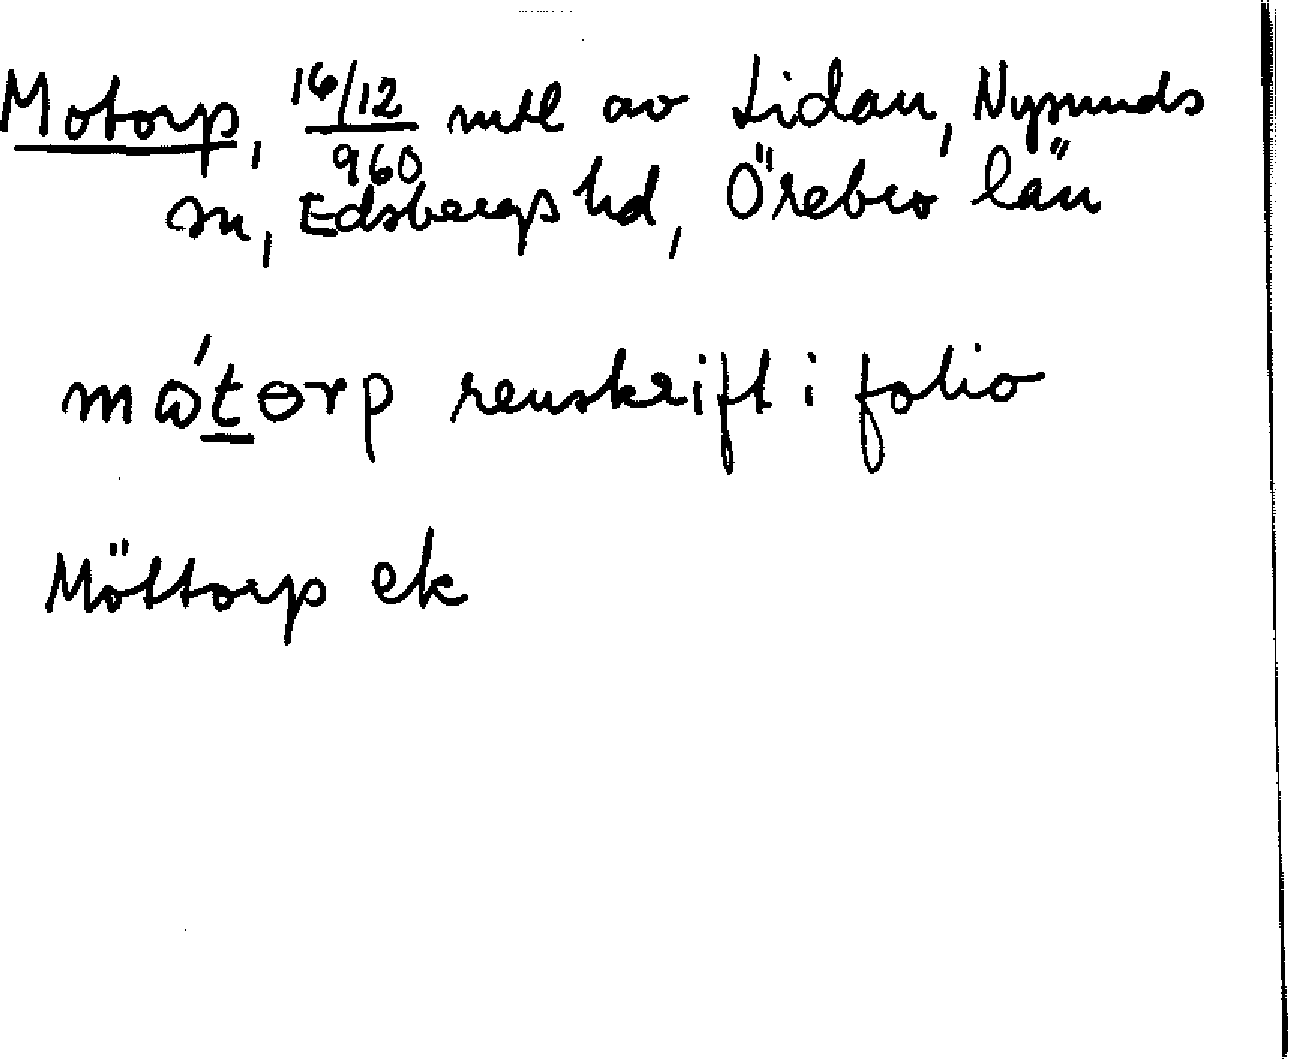 Motorp, 16/12/960 mtl av Lidan, Nysunds
sn, Edsbergs hd, Örebro län
mώtɵrp renskrift i folio
Möttorp ek